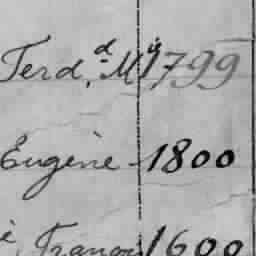 Ferd.d M.y 799
Eugène - 1800
é, Franço 1600